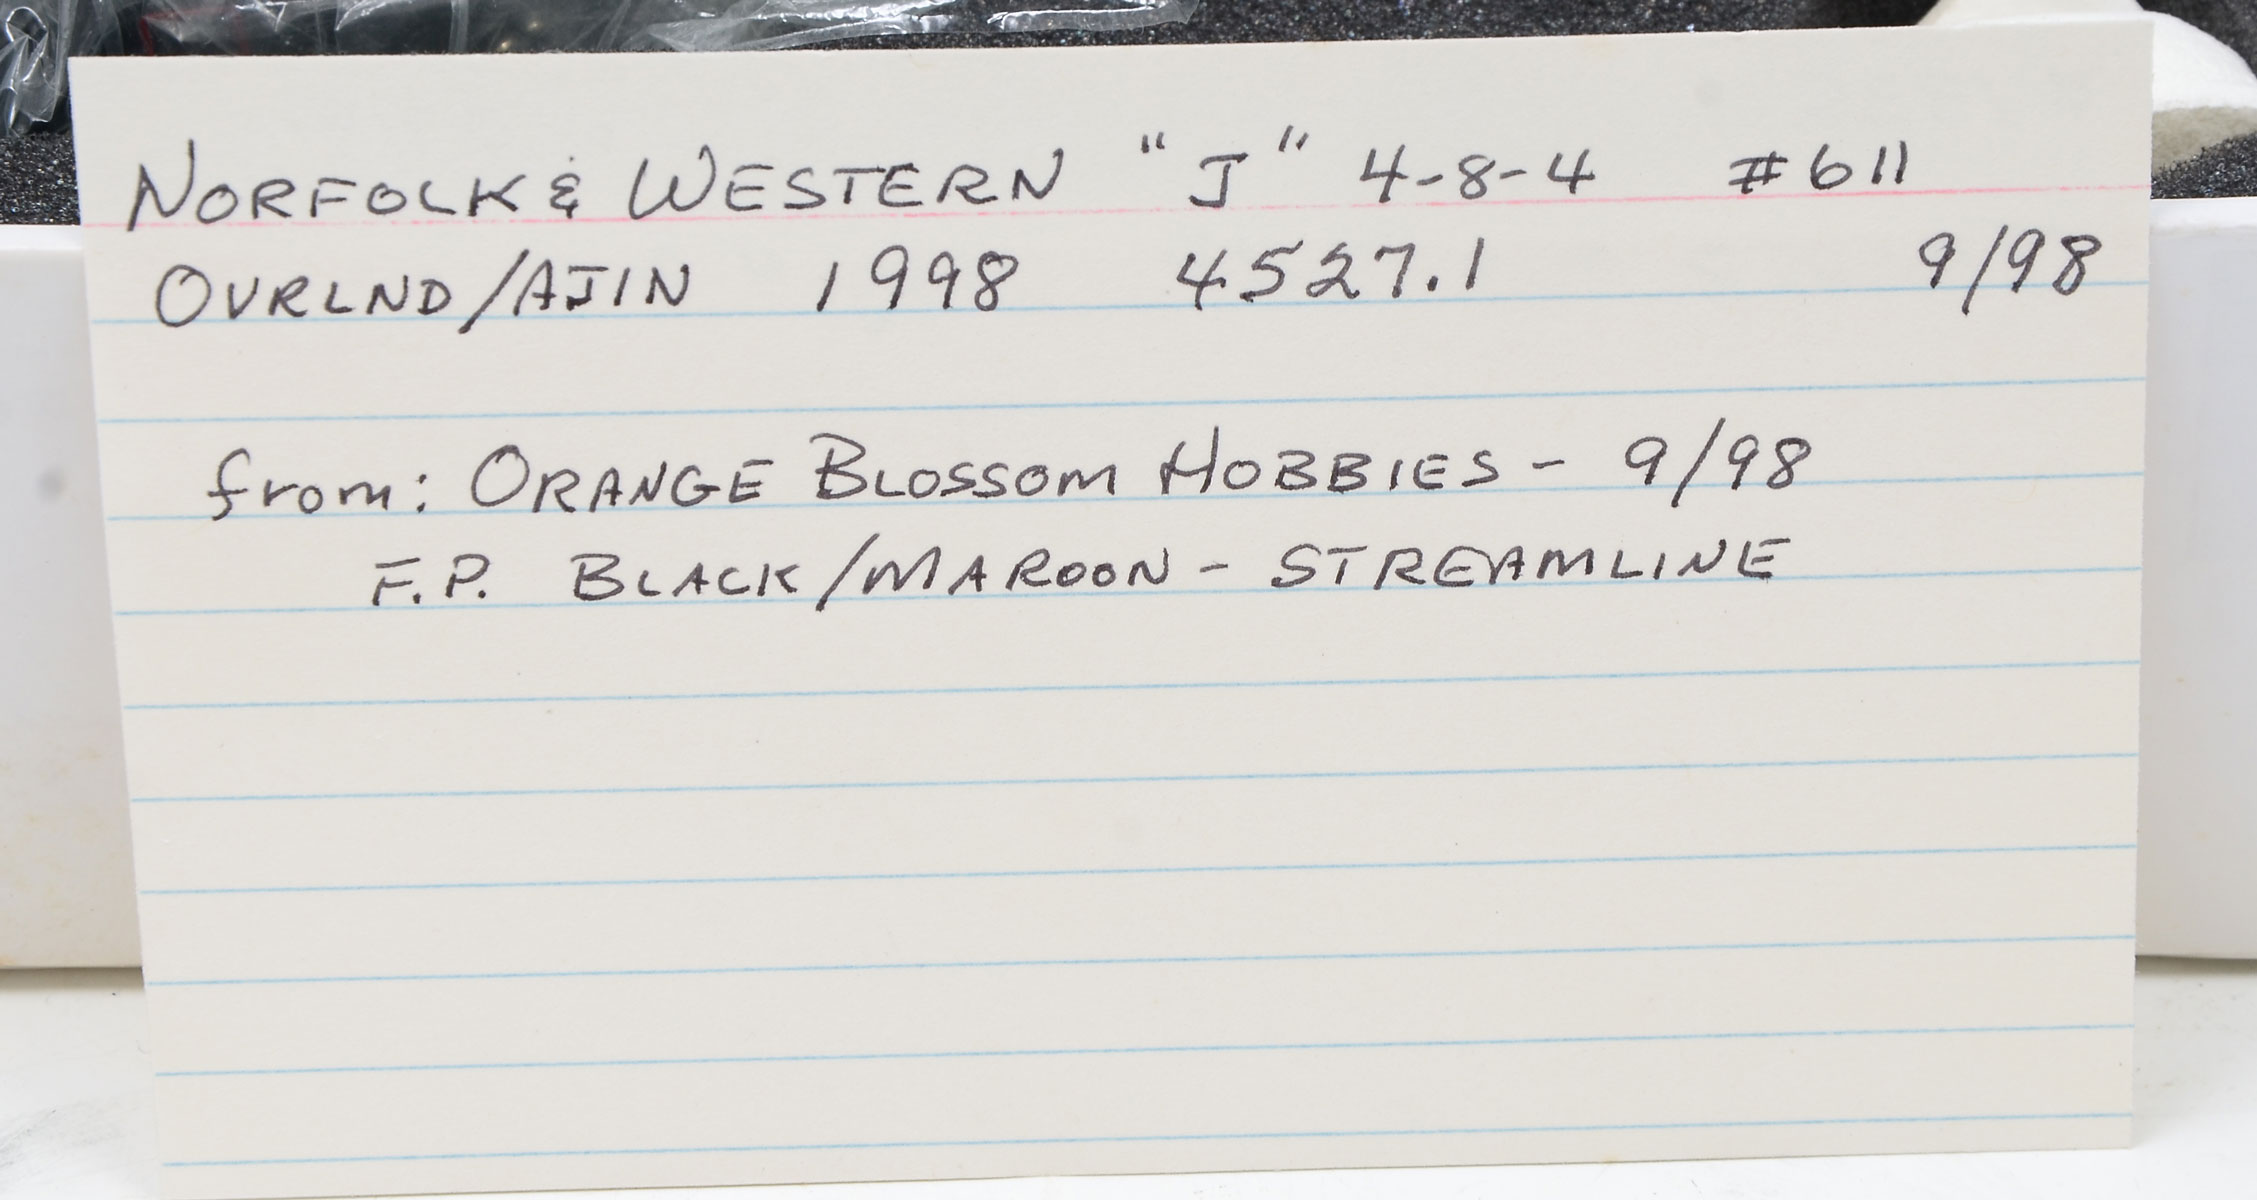 NORFOLK & WESTERN "J" 4-8-4 #611
OVRLND/AJIN 1998 4527.1 9/98
from: ORANGE BLOSSOM HOBBIES - 9/98
F.P. BLACK/MAROON - STREAMLINE